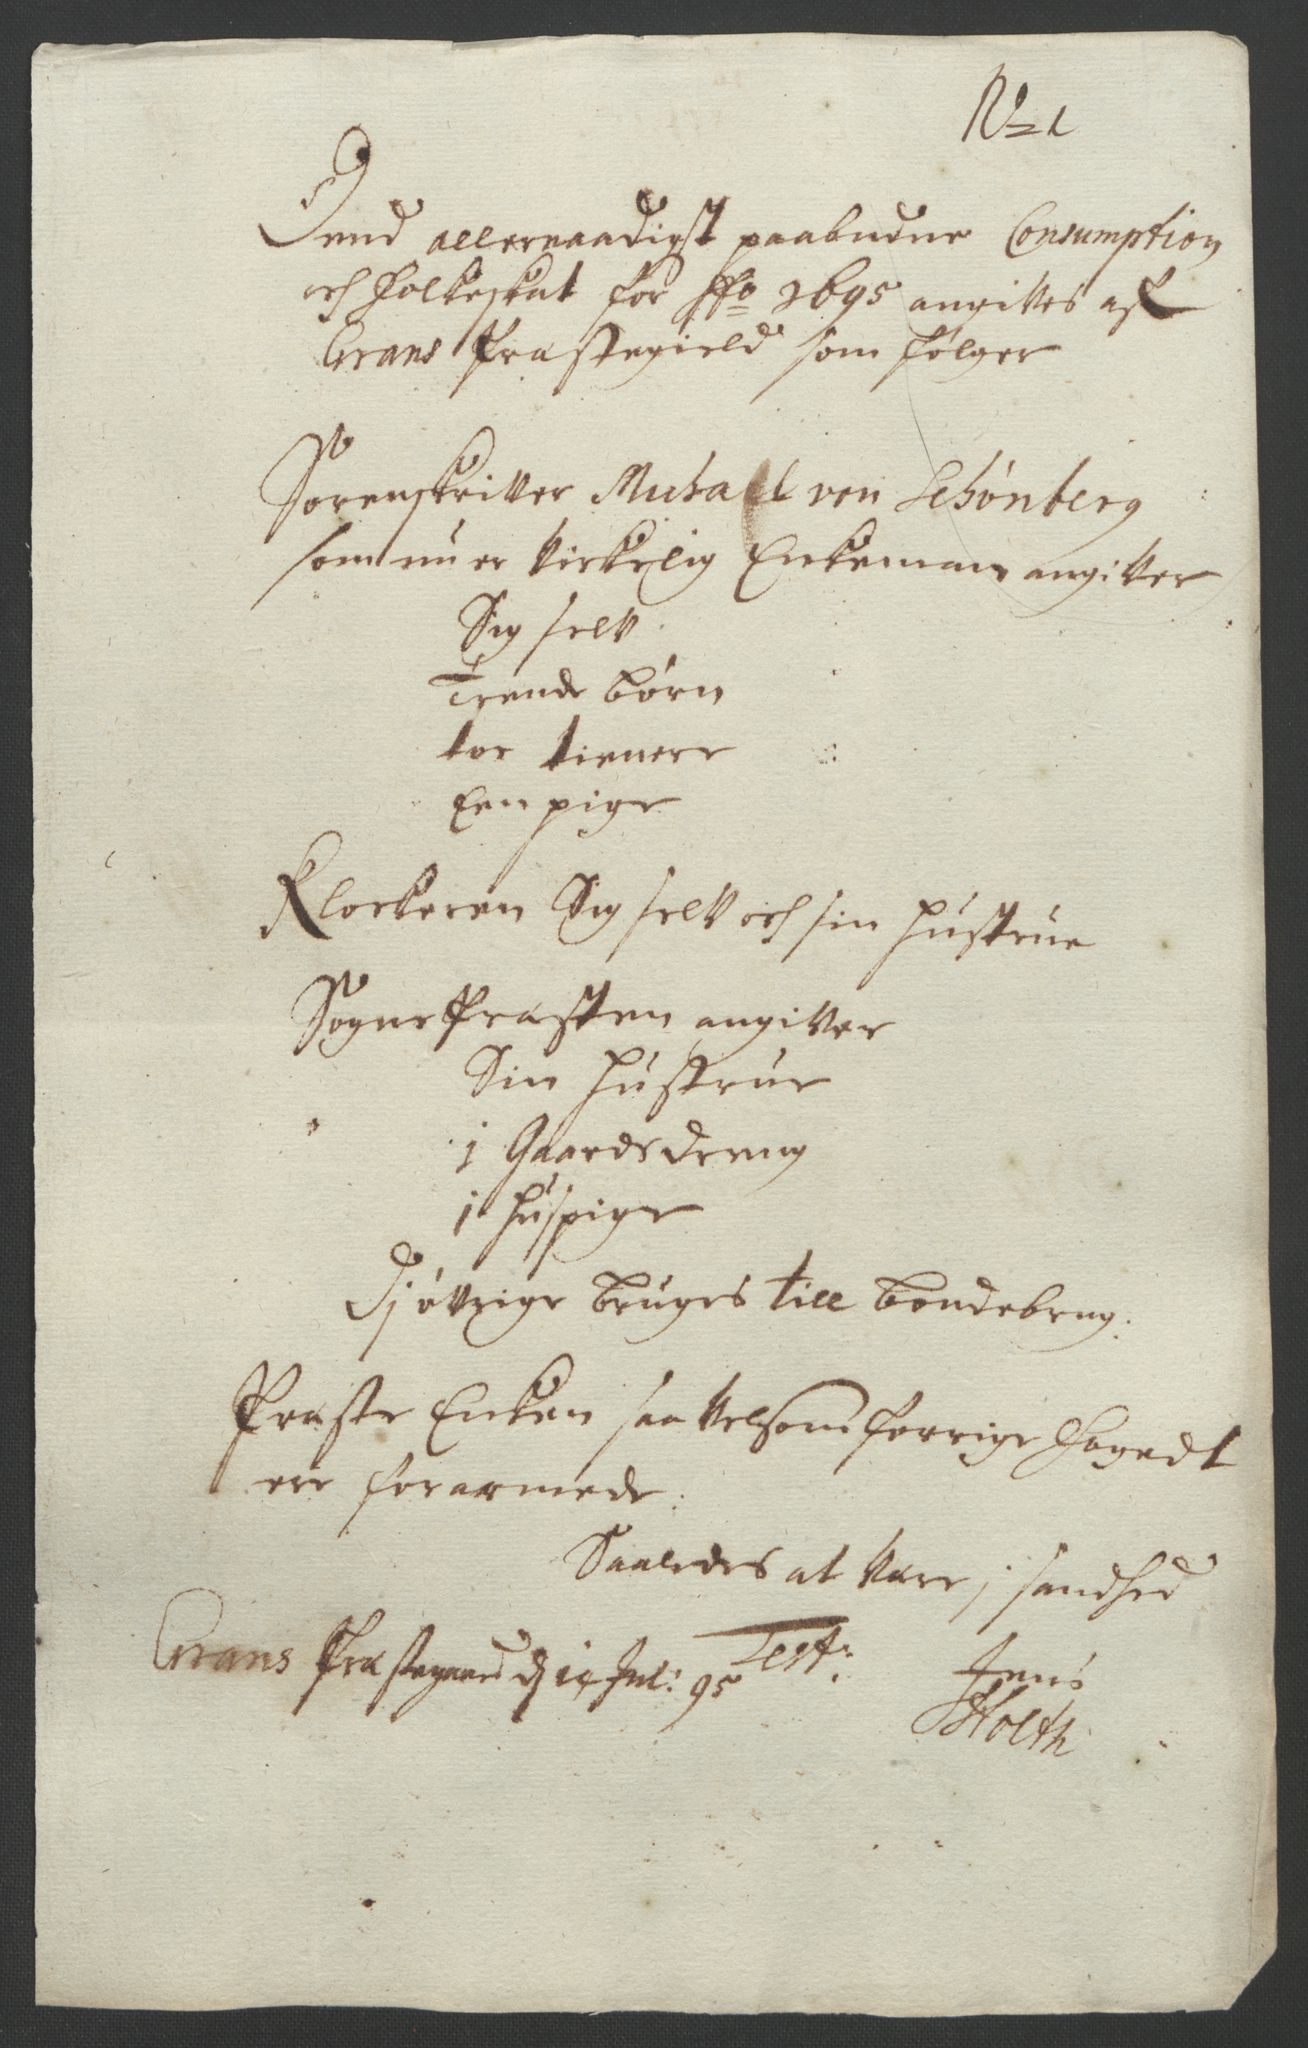 No 1
Dend allernaadigst paabudne Consumption
och Folkeskat for Ao 1695 angives af
Grans Præstegield som følger
Sorenskriver Michael von Schönberg
som nu er virkelig Enkeman angiver
Sig selv
Trende børn
toe tienere
Een pige
Klockeren Sig selv och sin hustrue
Sogne Præsten angiver
Sin hustrue
1 Gaardsdreng
1 huspige
Di øvrige bruges till bondebrug.
Præste Enken saa velsom forrige Fogedt
ere forarmede.
Saaledes at være i sandhed
Grans Præstegaard d 14 Jul: 95 Test:
Jens
Holth